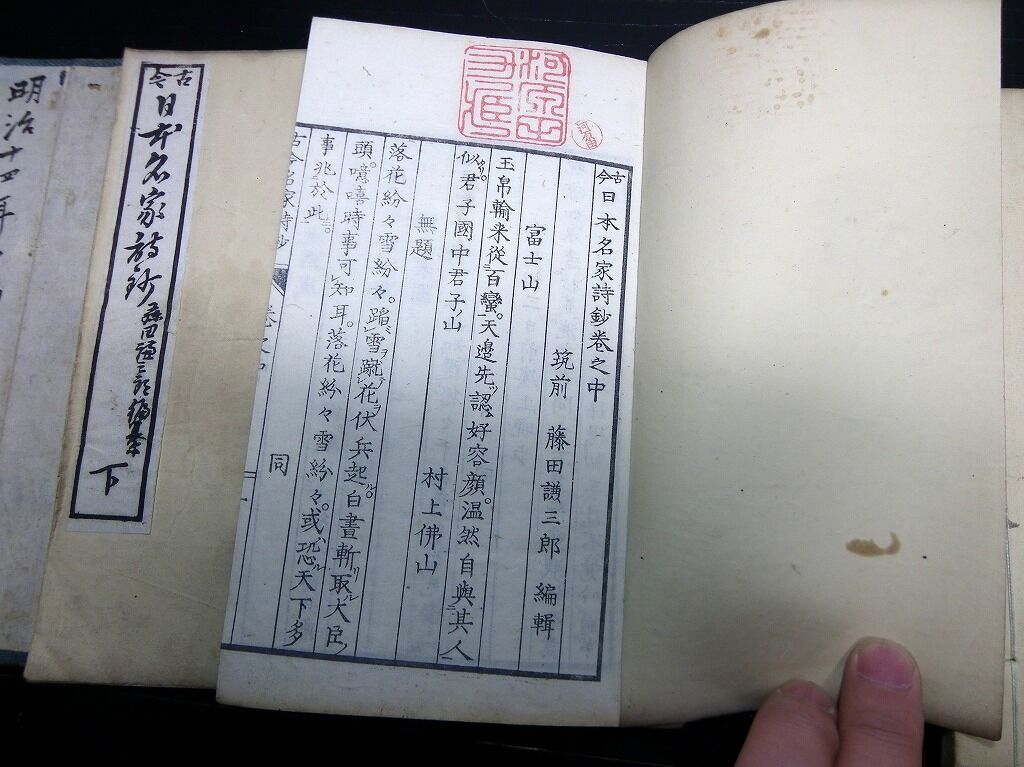 古今日本名家詩鈔卷之中
筑前 藤田謙三郎 編輯
富士山
玉帛輸来從百蠻。天邊先ッ認ム好容顏。温然自與ニ其人
似タリ。君子國中君子ノ山 村上佛山
無題
落花紛々雪紛々。蹈ミ雪ヲ蹴リ花ヲ伏兵起ル。白晝斬リ取ル大臣ノ
頭。噫嘻時事可シ知ル耳。落花紛々雪紛々。或ハ恐ル天下多
事兆於此。 同
古今名家詩鈔
古今日本名家詩鈔 藤田謙三郎編輯 下
明治十四年